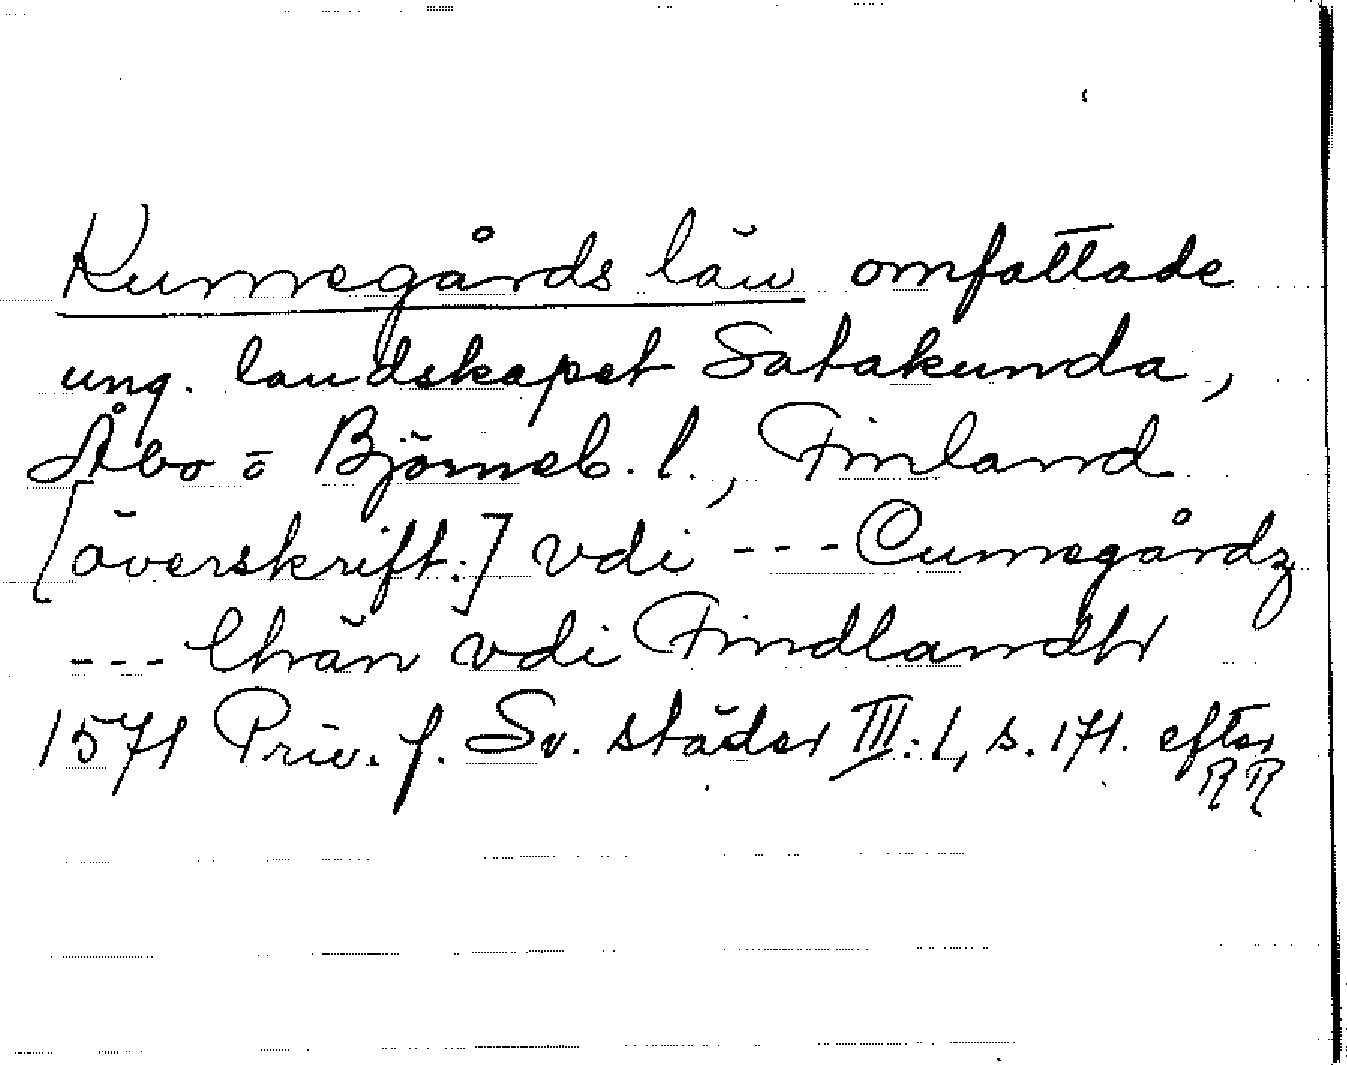 Kumegårds län omfattade
ung. landskapet Satakunda,
Åbo o Björneb. l., Finland
[överskift:] vdi --- Cumegårdz
--- lhän vdi Findlandh
1571 Priv. f. Sv. städer III:1, s. 171. efter
RR